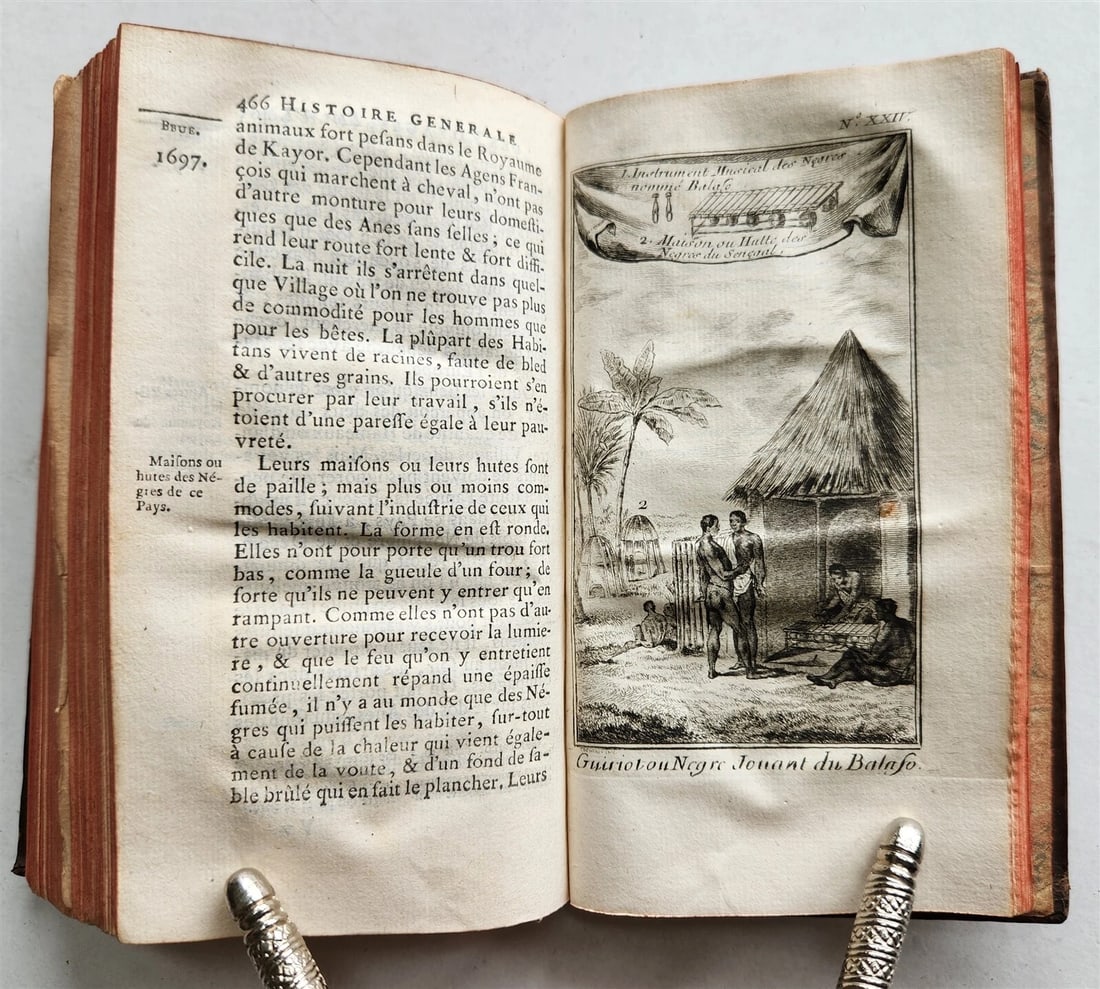 466 HISTOIRE GENERALE
BRUE.
1697.
animaux fort peſans dans le Royaume
de Kayor. Cependant les Agens Fran-
çois qui marchent à cheval, n'ont pas
d'autre monture pour leurs domeſti-
ques que des Anes ſans ſelles; ce qui
rend leur route fort lente & fort diffi-
cile. La nuit ils s'arrêtent dans quel-
que Village où l'on ne trouve pas plus
de commodité pour les hommes que
pour les bêtes. La plûpart des Habi-
tans vivent de racines, faute de bled
& d'autres grains. Ils pourroient s'en
procurer par leur travail, s'ils n'é-
toient d'une pareſſe égale à leur pau-
vreté.
Maiſons ou
hutes des Né-
gres de ce
Pays.
Leurs maiſons ou leurs hutes ſont
de paille; mais plus ou moins com-
modes, ſuivant l'induſtrie de ceux qui
les habitent. La forme en eſt ronde.
Elles n'ont pour porte qu'un trou fort
bas, comme la gueule d'un four; de
ſorte qu'ils ne peuvent y entrer qu'en
rampant. Comme elles n'ont pas d'au-
tre ouverture pour recevoir la lumie-
re, & que le feu qu'on y entretient
continuellement répand une épaiſſe
fumée, il n'y a au monde que des Né-
gres qui puiſſent les habiter, ſur-tout
à cauſe de la chaleur qui vient égale-
ment de la voute, & d'un fond de ſa-
ble brûlé qui en fait le plancher. Leurs
N.º XXIV.
1. Instrument Musical des Negres
nommé Balafo
2. Maison ou Hutte des
Negres du Senegal.
2
Guiriot ou Negre Jouant du Balafo.